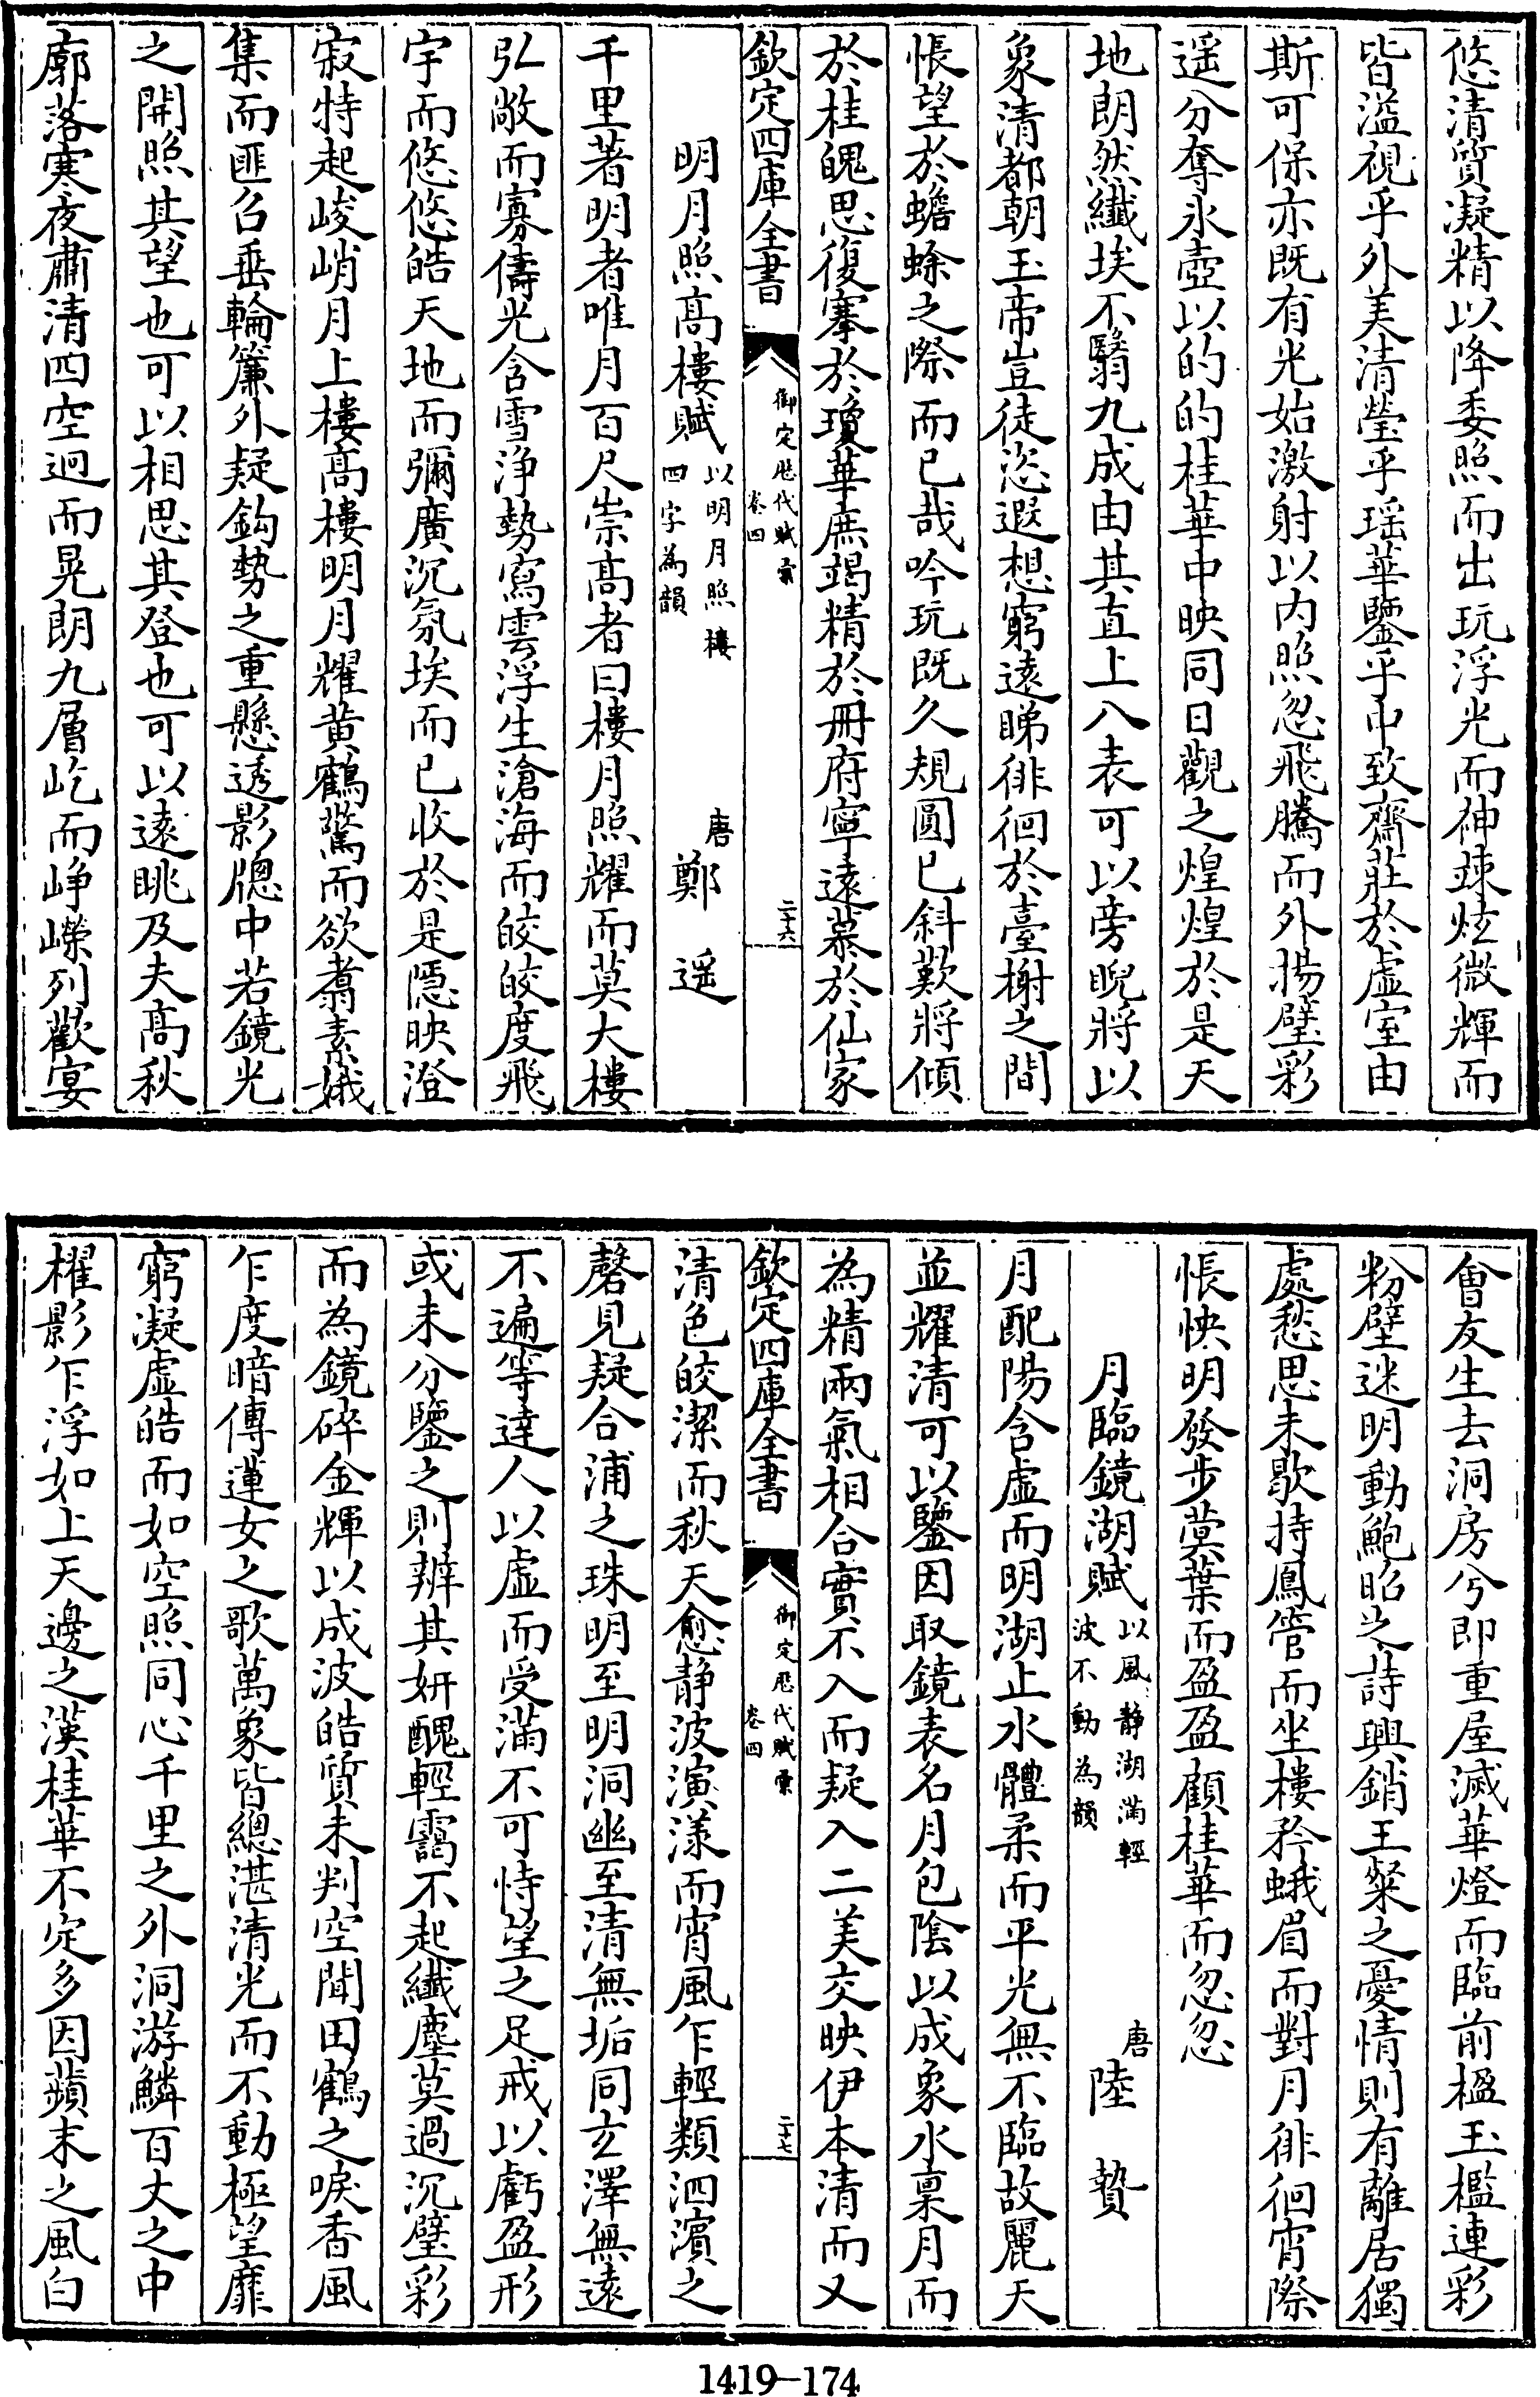 悠清質凝精以降委照而出玩浮光而神竦炫微輝而
皆溢視乎外美清瑩乎瑶華鑒乎中致齋莊於虚室由
斯可保亦既有光始激射以内照忽飛騰而外揚璧彩
遥分奪氷壺以的的桂華中映同日觀之煌煌於是天
地朗然纖埃不翳九成由其直上八表可以旁睨將以
象清都朝玉帝豈徒恣遐想窮遠睇徘徊於臺榭之間
悵望於蟾蜍之際而已哉吟玩既久規圓已斜歎將傾
於桂魄思復搴於瓊華庶竭精於冊府寧遠慕於仙家
欽定四庫全書
御定歴代賦彙
卷四
二十六
明月照高樓賦
以明月照樓
四字為韻
唐鄭遥
千里著明者唯月百尺崇高者曰樓月照耀而莫大樓
弘敞而寡儔光含雪浄勢寫雲浮生滄海而皎皎度飛
宇而悠悠皓天地而彌廣沉氛埃而已收於是隱映澄
寂特起峻峭月上樓高樓明月耀黄鶴驚而欲翥素娥
集而匪召垂輪簾外疑鈎勢之重懸透影牕中若鏡光
之開照其望也可以相思其登也可以遠眺及夫高秋
廓落寒夜肅清四空迥而晃朗九層屹而峥嶸列歡宴
會友生去洞房兮即重屋滅華燈而臨前楹玉檻連彩
粉壁迷明動鮑昭之詩興銷王粲之憂情則有離居獨
處愁思未歇持鳳管而坐樓矜蛾眉而對月徘徊宵際
悵怏明發步蓂葉而盈盈顧桂華而忽忽
月臨鏡湖賦
以風静湖滿輕
波不動為韻
唐陸贄
月配陽含虚而明湖止水體柔而平光無不臨故麗天
並耀清可以鑒因取鏡表名月包陰以成象水禀月而
為精兩氣相合實不入而疑入二美交映伊本清而又
欽定四庫全書
御定歴代賦彙
卷四
二十七
清色皎潔而秋天愈静波演漾而宵風乍輕類泗濱之
磬見疑合浦之珠明至明洞幽至清無垢同玄澤無遠
不遍等達人以虚而受滿不可恃望之足戒以虧盈形
或未分鑒之則辨其妍醜輕靄不起纖塵莫過沉璧彩
而為鏡碎金輝以成波皓質未判空聞田鶴之唳香風
乍度暗傳蓮女之歌萬象皆總湛清光而不動極望靡
窮凝虚皓而如空照同心千里之外洞游鱗百丈之中
櫂影乍浮如上天邊之漢桂華不定多因蘋末之風白
1419-174